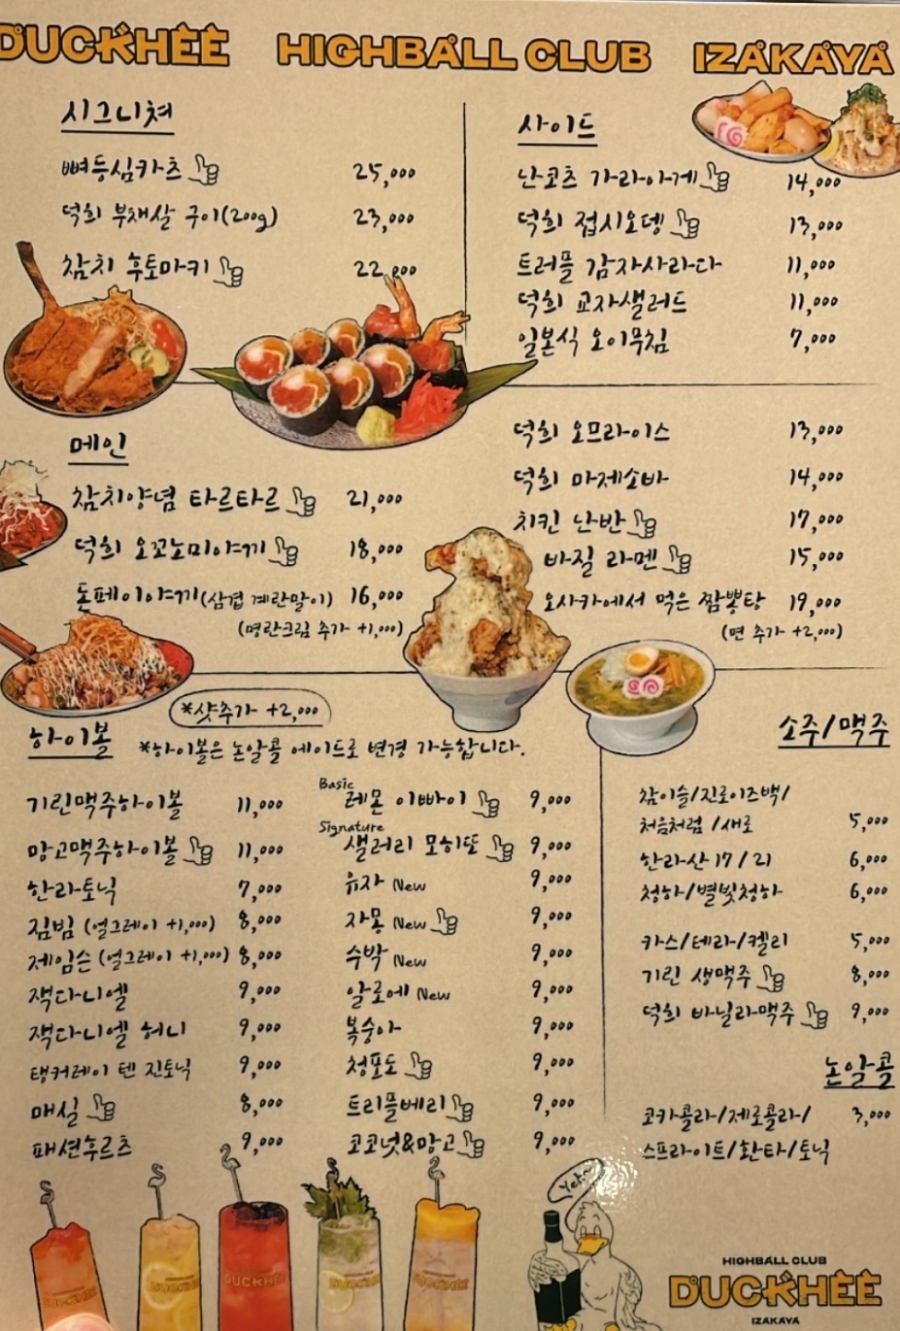 DUCKHEE HIGHBALL CLUB IZAKAYA
시그니쳐
뼈등심카츠 25,000
덕희 부채살 구이(200g) 23,000
참치 후토마키 22,000
사이드
난코츠 가라아게 14,000
덕희 접시오뎅 13,000
트러플 감자사라다 11,000
덕희 교자샐러드 11,000
일본식 오이무침 7,000
메인
참치양념 타르타르 21,000
덕희 오꼬노미야끼 18,000
돈페이야끼(삼겹 계란말이) 16,000
(명란크림 추가 +1,000)
덕희 오므라이스 13,000
덕희 마제소바 14,000
치킨 난반 17,000
바질 라멘 15,000
오사카에서 먹은 짬뽕탕 19,000
(면 추가 +2,000)
*샷추가 +2,000
하이볼 *하이볼은 논알콜 에이드로 변경 가능합니다.
기린맥주하이볼 11,000
망고맥주하이볼 11,000
한라토닉 7,000
짐빔 (얼그레이 +1,000) 8,000
제임슨 (얼그레이 +1,000) 8,000
잭다니엘 9,000
잭다니엘 허니 9,000
탱커레이 텐 진토닉 9,000
매실 8,000
패션후르츠 9,000
Basic
레몬 이빠이 9,000
Signature
샐러리 모히또 9,000
유자 New 9,000
자몽 New 9,000
수박 New 9,000
알로에 New 9,000
복숭아 9,000
청포도 9,000
트리플베리 9,000
코코넛&망고 9,000
소주/맥주
참이슬/진로이즈백/
처음처럼/새로 5,000
한라산 17/21 6,000
청하/별빛청하 6,000
카스/테라/켈리 5,000
기린 생맥주 8,000
덕희 바닐라맥주 9,000
논알콜
코카콜라/제로콜라/ 3,000
스프라이트/환타/토닉
Yeh~
HIGHBALL CLUB
DUCKHEE
IZAKAYA